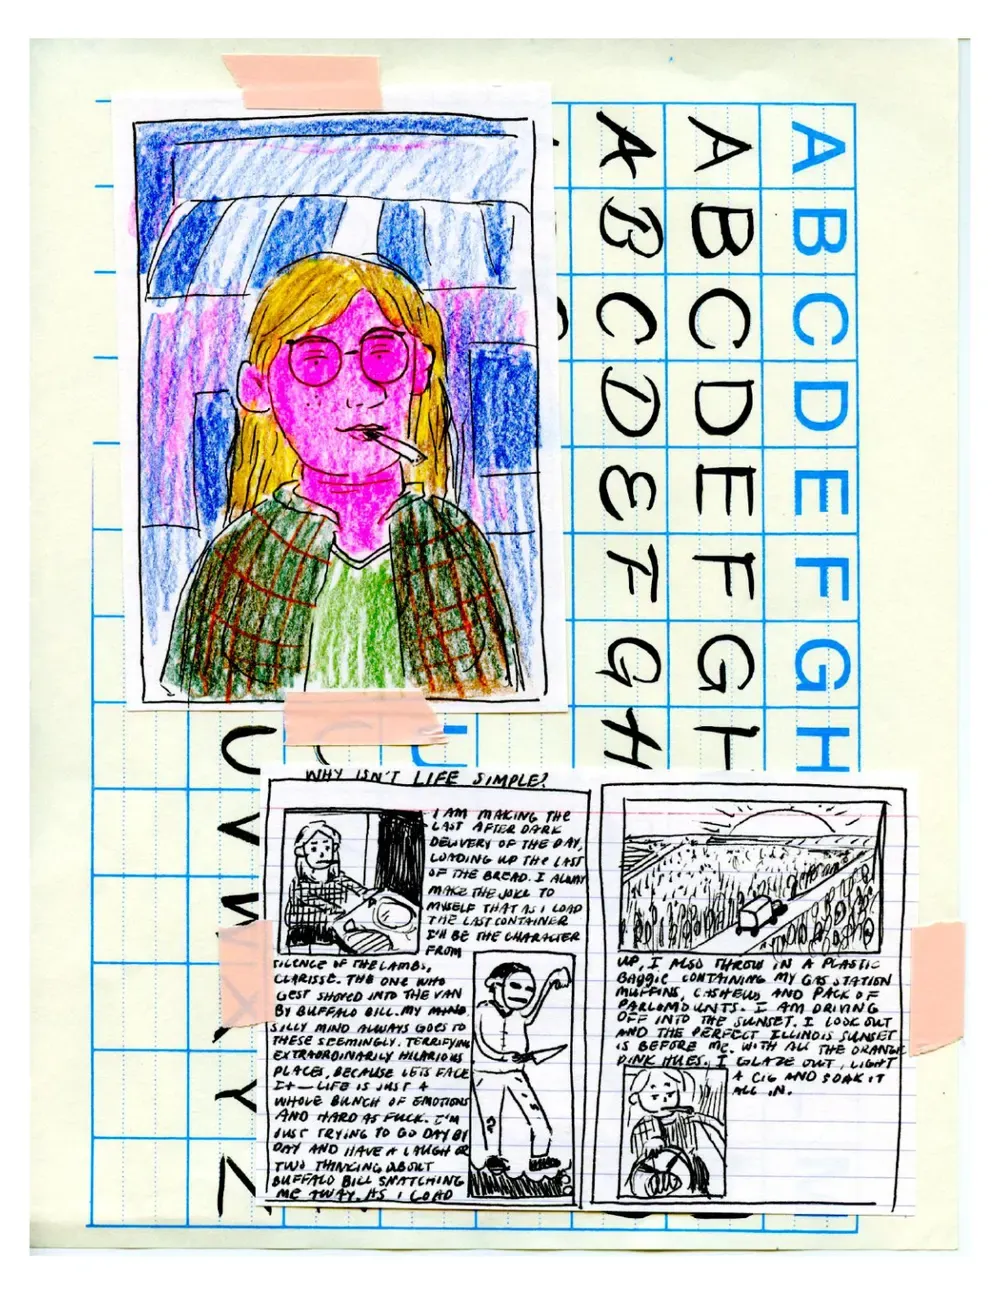 A B C D E F G H
A B C D E F G H
A B C D E F G H
U V W X Y Z
U
WHY ISN'T LIFE SIMPLE?
I AM MAKING THE
LAST AFTER DARK
DELIVERY OF THE DAY,
LOADING UP THE LAST
OF THE BREAD. I ALWAY
MAKE THE JOKE TO
MYSELF THAT AS I LOAD
THE LAST CONTAINER
I'LL BE THE CHARACTER
FROM
SILENCE OF THE LAMBS,
CLARISSE. THE ONE WHO
GEST SHOVED INTO THE VAN
BY BUFFALO BILL. MY MIND.
SILLY MIND ALWAYS GOES TO
THESE SEEMINGLY. TERRIFYING
EXTRAORDINARILY HILARIOUS
PLACES, BECAUSE LETS FACE
IT — LIFE IS JUST A
WHOLE BUNCH OF EMOTIONS
AND HARD AS FUCK. I'M
JUST TRYING TO GO DAY BY
DAY AND HAVE A LAUGH OR
TWO THINKING ABOUT
BUFFALO BILL SNATCHING
ME AWAY. AS I LOAD
UP, I ALSO THROW IN A PLASTIC
BAGGIE CONTAINING MY GAS STATION
MUFFINS, CASHEWS AND PACK OF
PARLOMOUNTS. I AM DRIVING
OFF INTO THE SUNSET. I LOOK OUT
AND THE PERFECT ILLINOIS SUNSET
IS BEFORE ME. WITH ALL THE ORANGE
PINK HUES. I GLAZE OUT, LIGHT
A CIG AND SOAK IT
ALL IN.